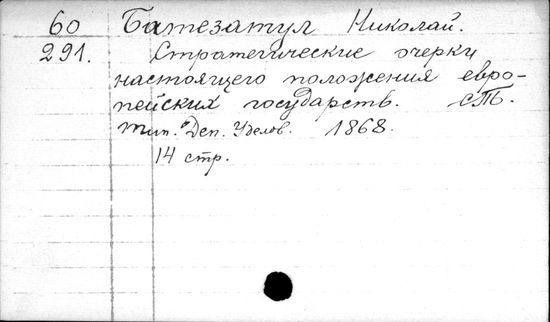 60 Батезатул Николай.
291. Стратегические очерки
настоящего положения евро-
пейских государств. СПб.
тип. Деп. Уделов. 1868.
14 стр.